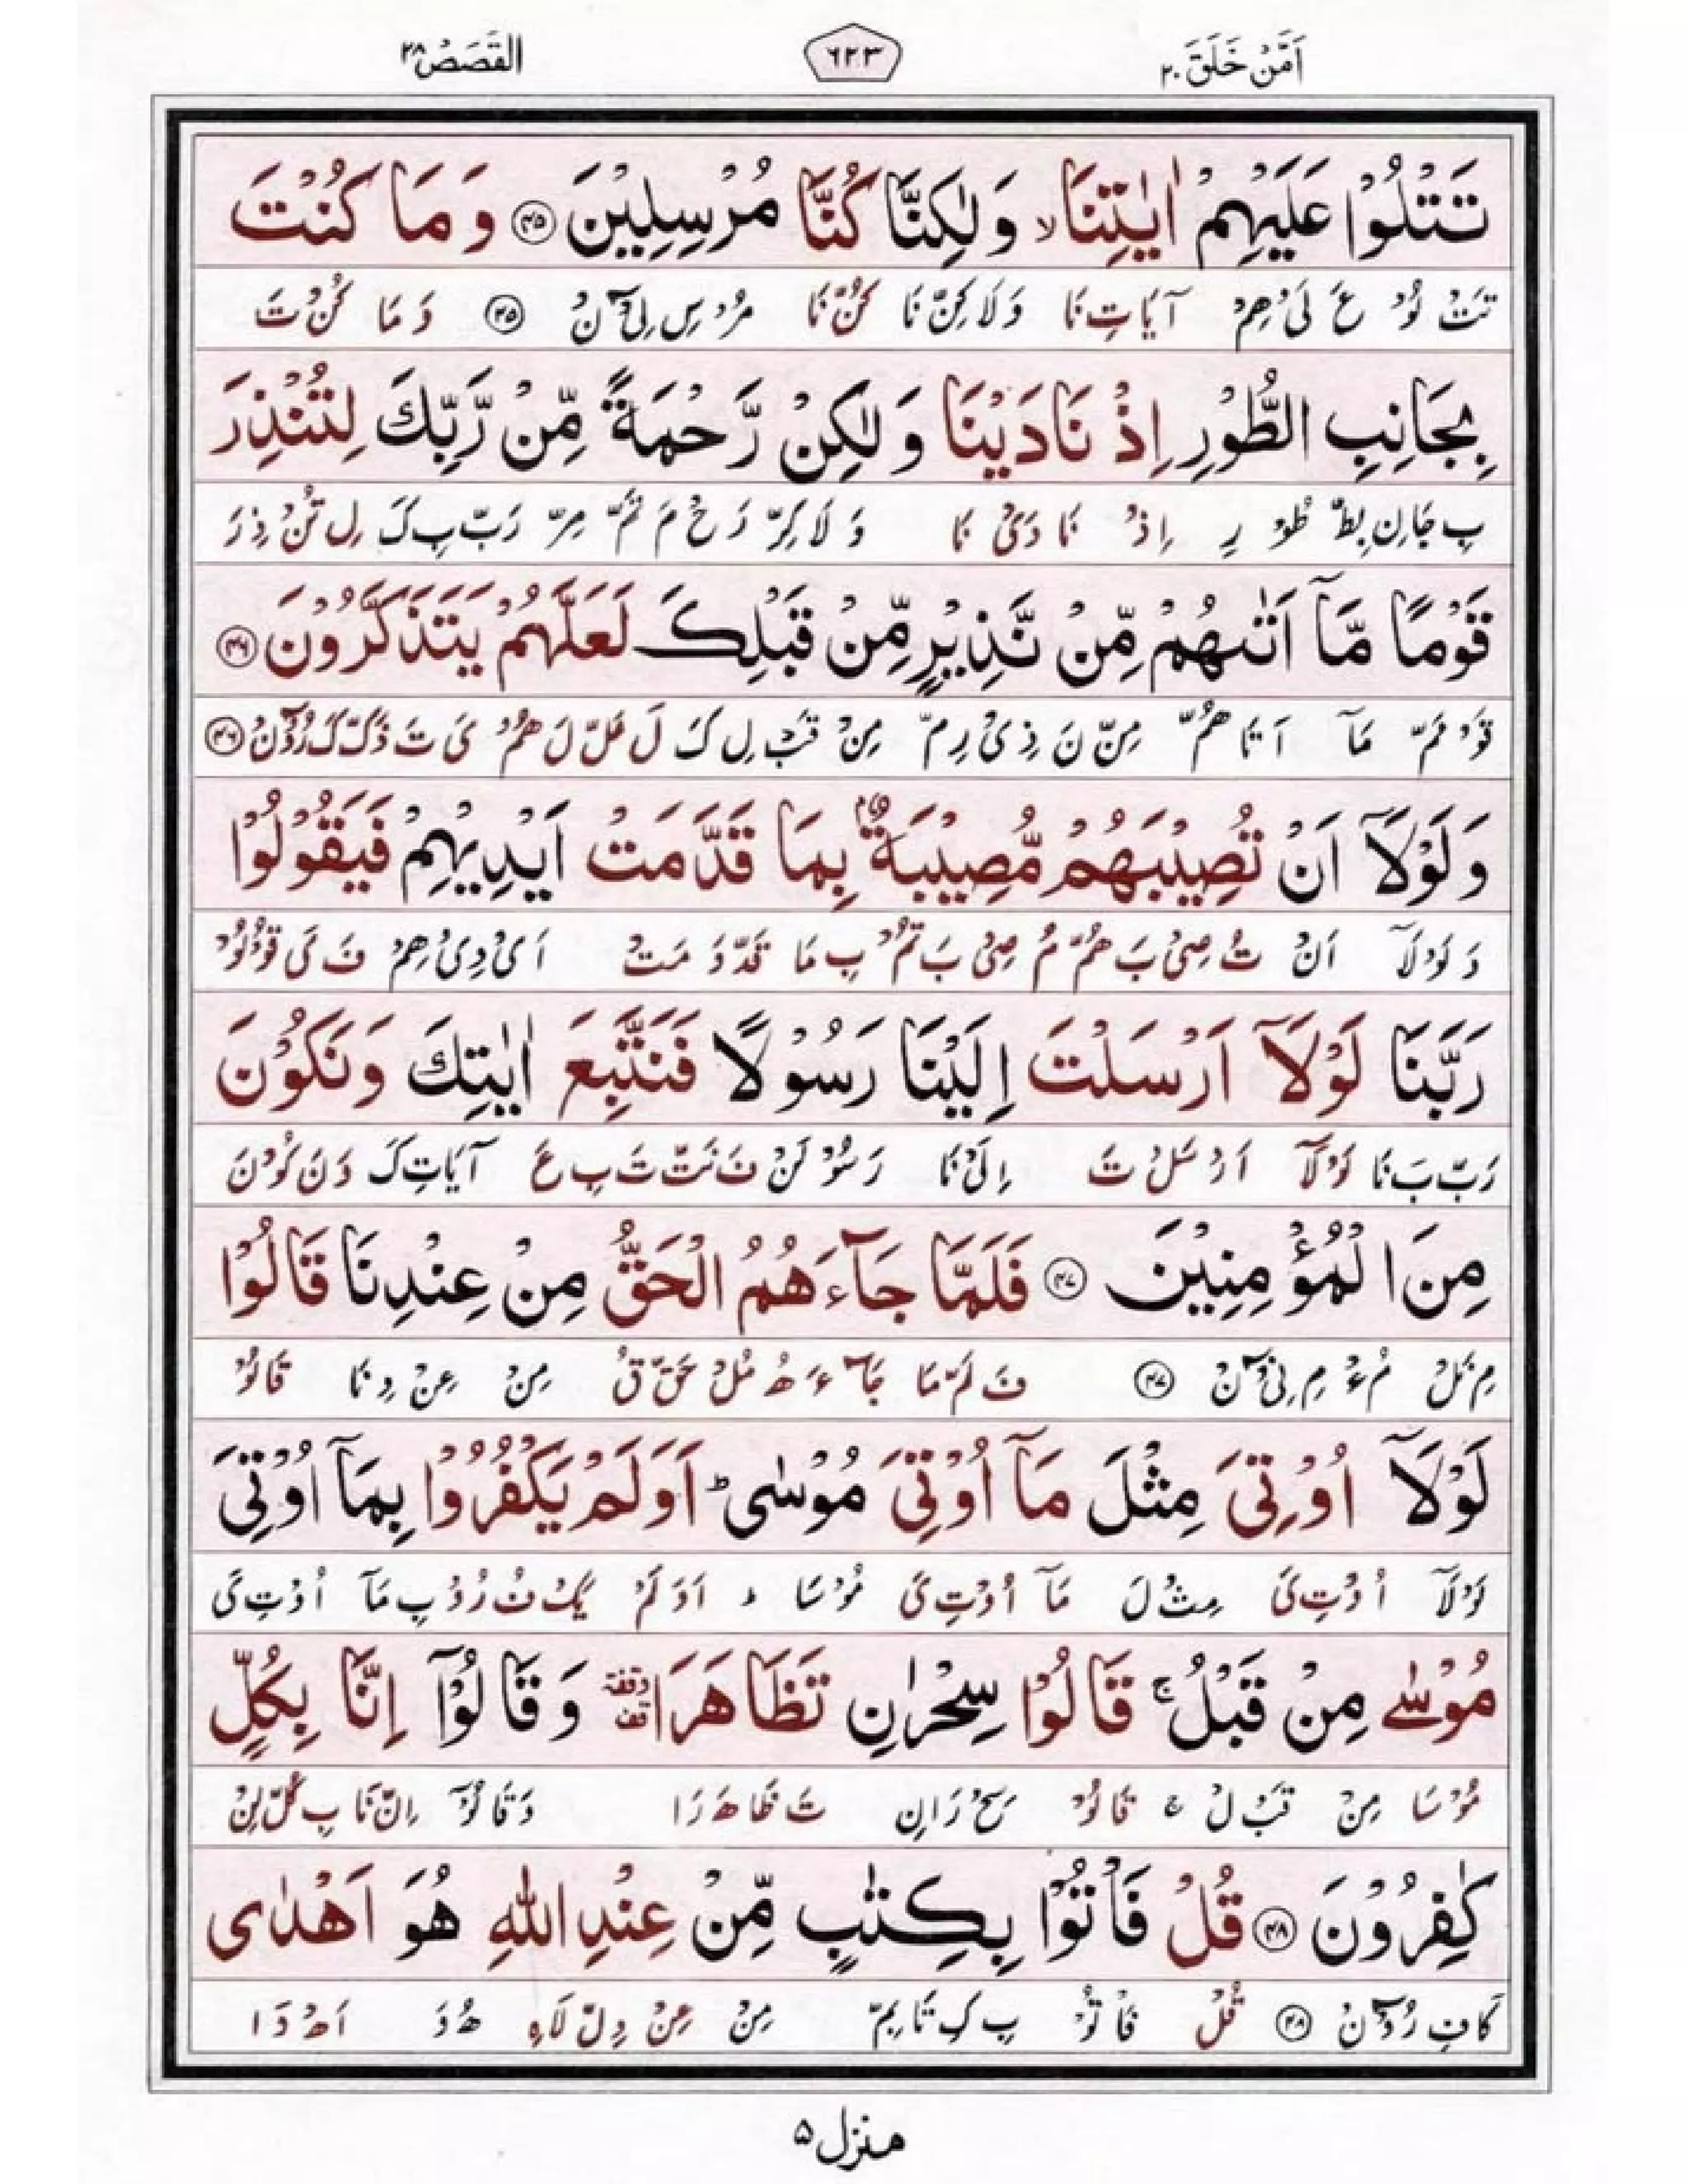 اَمَّنْ خَلَقَ ۲۰ ٦٢٣ القَصَصُ ۲۸
تَتْلُوْا عَلَيْهِمْ اٰيٰتِنَا ۙ وَلٰكِنَّا كُنَّا مُرْسِلِيْنَ ﴿۴۵﴾ وَ مَا كُنْتَ
تَتْ لُوْ عَ لَىْ هِمْ آيَاتِ نَا وَ لَا كِنَّ نَا كُنَّ نَا مُرْ سِ لِىْٓ نْ ﴿۴۵﴾ وَ مَا كُنْ تَ
بِجَانِبِ الطُّوْرِ اِذْ نَادَيْنَا وَ لٰكِنْ رَّحْمَةً مِّنْ رَّبِّكَ لِتُنْذِرَ
بِ جَانِ بِطّ طُوْ رِ اِذْ نَا دَىْ نَا وَ لَا كِرّ رَ حْ مَ تَمّ مِرّ رَبّ بِ كَ لِ تُنْ ذِ رَ
قَوْمًا مَّاۤ اَتٰىهُمْ مِّنْ نَّذِيْرٍ مِّنْ قَبْلِكَ لَعَلَّهُمْ يَتَذَكَّرُوْنَ ﴿۴۶﴾
قَوْ مَمّ مَآ اَ تَا هُمّ مِنّ نَ ذِ ىْ رِ مّ مِنْ قَبْ لِ كَ لَ عَلّ لَ هُمْ ىَ تَ ذَكّ كَ رُوْٓنْ ﴿۴۶﴾
وَلَوْلَاۤ اَنْ تُصِيْبَهُمْ مُّصِيْبَةٌۢ بِمَا قَدَّمَتْ اَيْدِيْهِمْ فَيَقُوْلُوْا
وَ لَوْ لَآ اَنْ تُ صِىْ بَ هُمّ مُ صِىْ بَ تُمْ بِ مَا قَدّ دَ مَتْ اَىْ دِىْ هِمْ فَ ىَ قُوْلُوْ
رَبَّنَا لَوْلَاۤ اَرْسَلْتَ اِلَيْنَا رَسُوْلًا فَنَتَّبِعَ اٰيٰتِكَ وَنَكُوْنَ
رَبّ بَ نَا لَوْ لَآ اَرْ سَلْ تَ اِلَىْ نَا رَسُوْ لَنْ فَ نَتّ تَ بِ عَ آيَاتِ كَ وَ نَ كُوْ نَ
مِنَ الْمُؤْمِنِيْنَ ﴿۴۷﴾ فَلَمَّا جَآءَهُمُ الْحَقُّ مِنْ عِنْدِنَا قَالُوْا
مِ نَلْ مُءْ مِ نِىْٓ نْ ﴿۴۷﴾ فَ لَمّ مَا جَآ ءَ هُ مُلْ حَقّ قُ مِنْ عِنْ دِ نَا قَالُوْ
لَوْلَاۤ اُوْتِىَ مِثْلَ مَاۤ اُوْتِىَ مُوْسٰى ؕ اَوَلَمْ يَكْفُرُوْا بِمَاۤ اُوْتِىَ
لَوْ لَآ اُ وْتِ ىَ مِثْ لَ مَآ اُوْتِ ىَ مُوْ سَا ؕ اَوَ لَمْ يَكْ فُ رُوْ بِ مَآ اُوْتِ ىَ
مُوْسٰى مِنْ قَبْلُ ۚ قَالُوْا سِحْرٰنِ تَظَاهَرَا وَ قَالُوْۤا اِنَّا بِكُلٍّ
مُوْ سَا مِنْ قَبْ لُ ۚ قَا لُوْ سِحْ رَانِ تَ ظَا هَ رَا وَ قَا لُوْٓ اِنّ نَا بِ كُلّ لِنْ
كٰفِرُوْنَ ﴿۴۸﴾ قُلْ فَاْتُوْا بِكِتٰبٍ مِّنْ عِنْدِ اللّٰهِ هُوَ اَهْدٰى
كَا فِ رُوْٓ نْ ﴿۴۸﴾ قُلْ فَاْ تُوْ بِ كِ تَا بِمّ مِنْ عِنْ دِلّ لَاهِ هُ وَ اَهْ دَا
منزل ۵